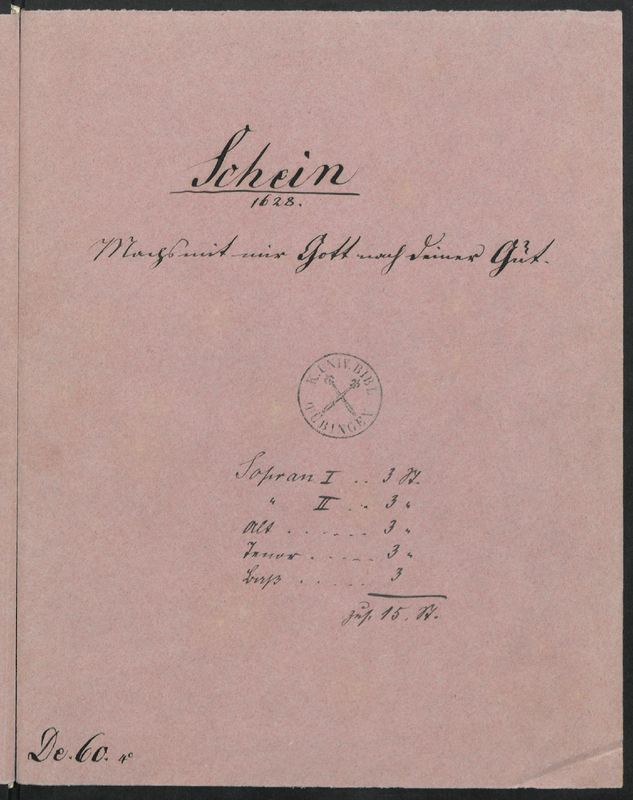 Schein
1628.
Machs mit mir Gott nach deiner Güt.
K. UNIV. BIBL.
TÜBINGEN
Sopran I .. 3 St.
" II .. 3 "
Alt ...... 3 "
Tenor ..... 3 "
Baß ..... 3
zus. 15. St.
De. 60. 4°